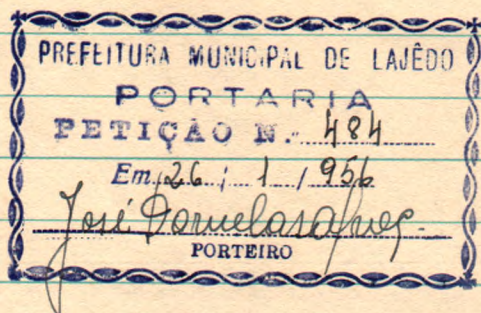 PREFEITURA MUNICIPAL DE LAJÊDO
PORTARIA
PETIÇÃO N.- 484
Em, 26 / 1 / 956
José Dornelas Alves.
PORTEIRO